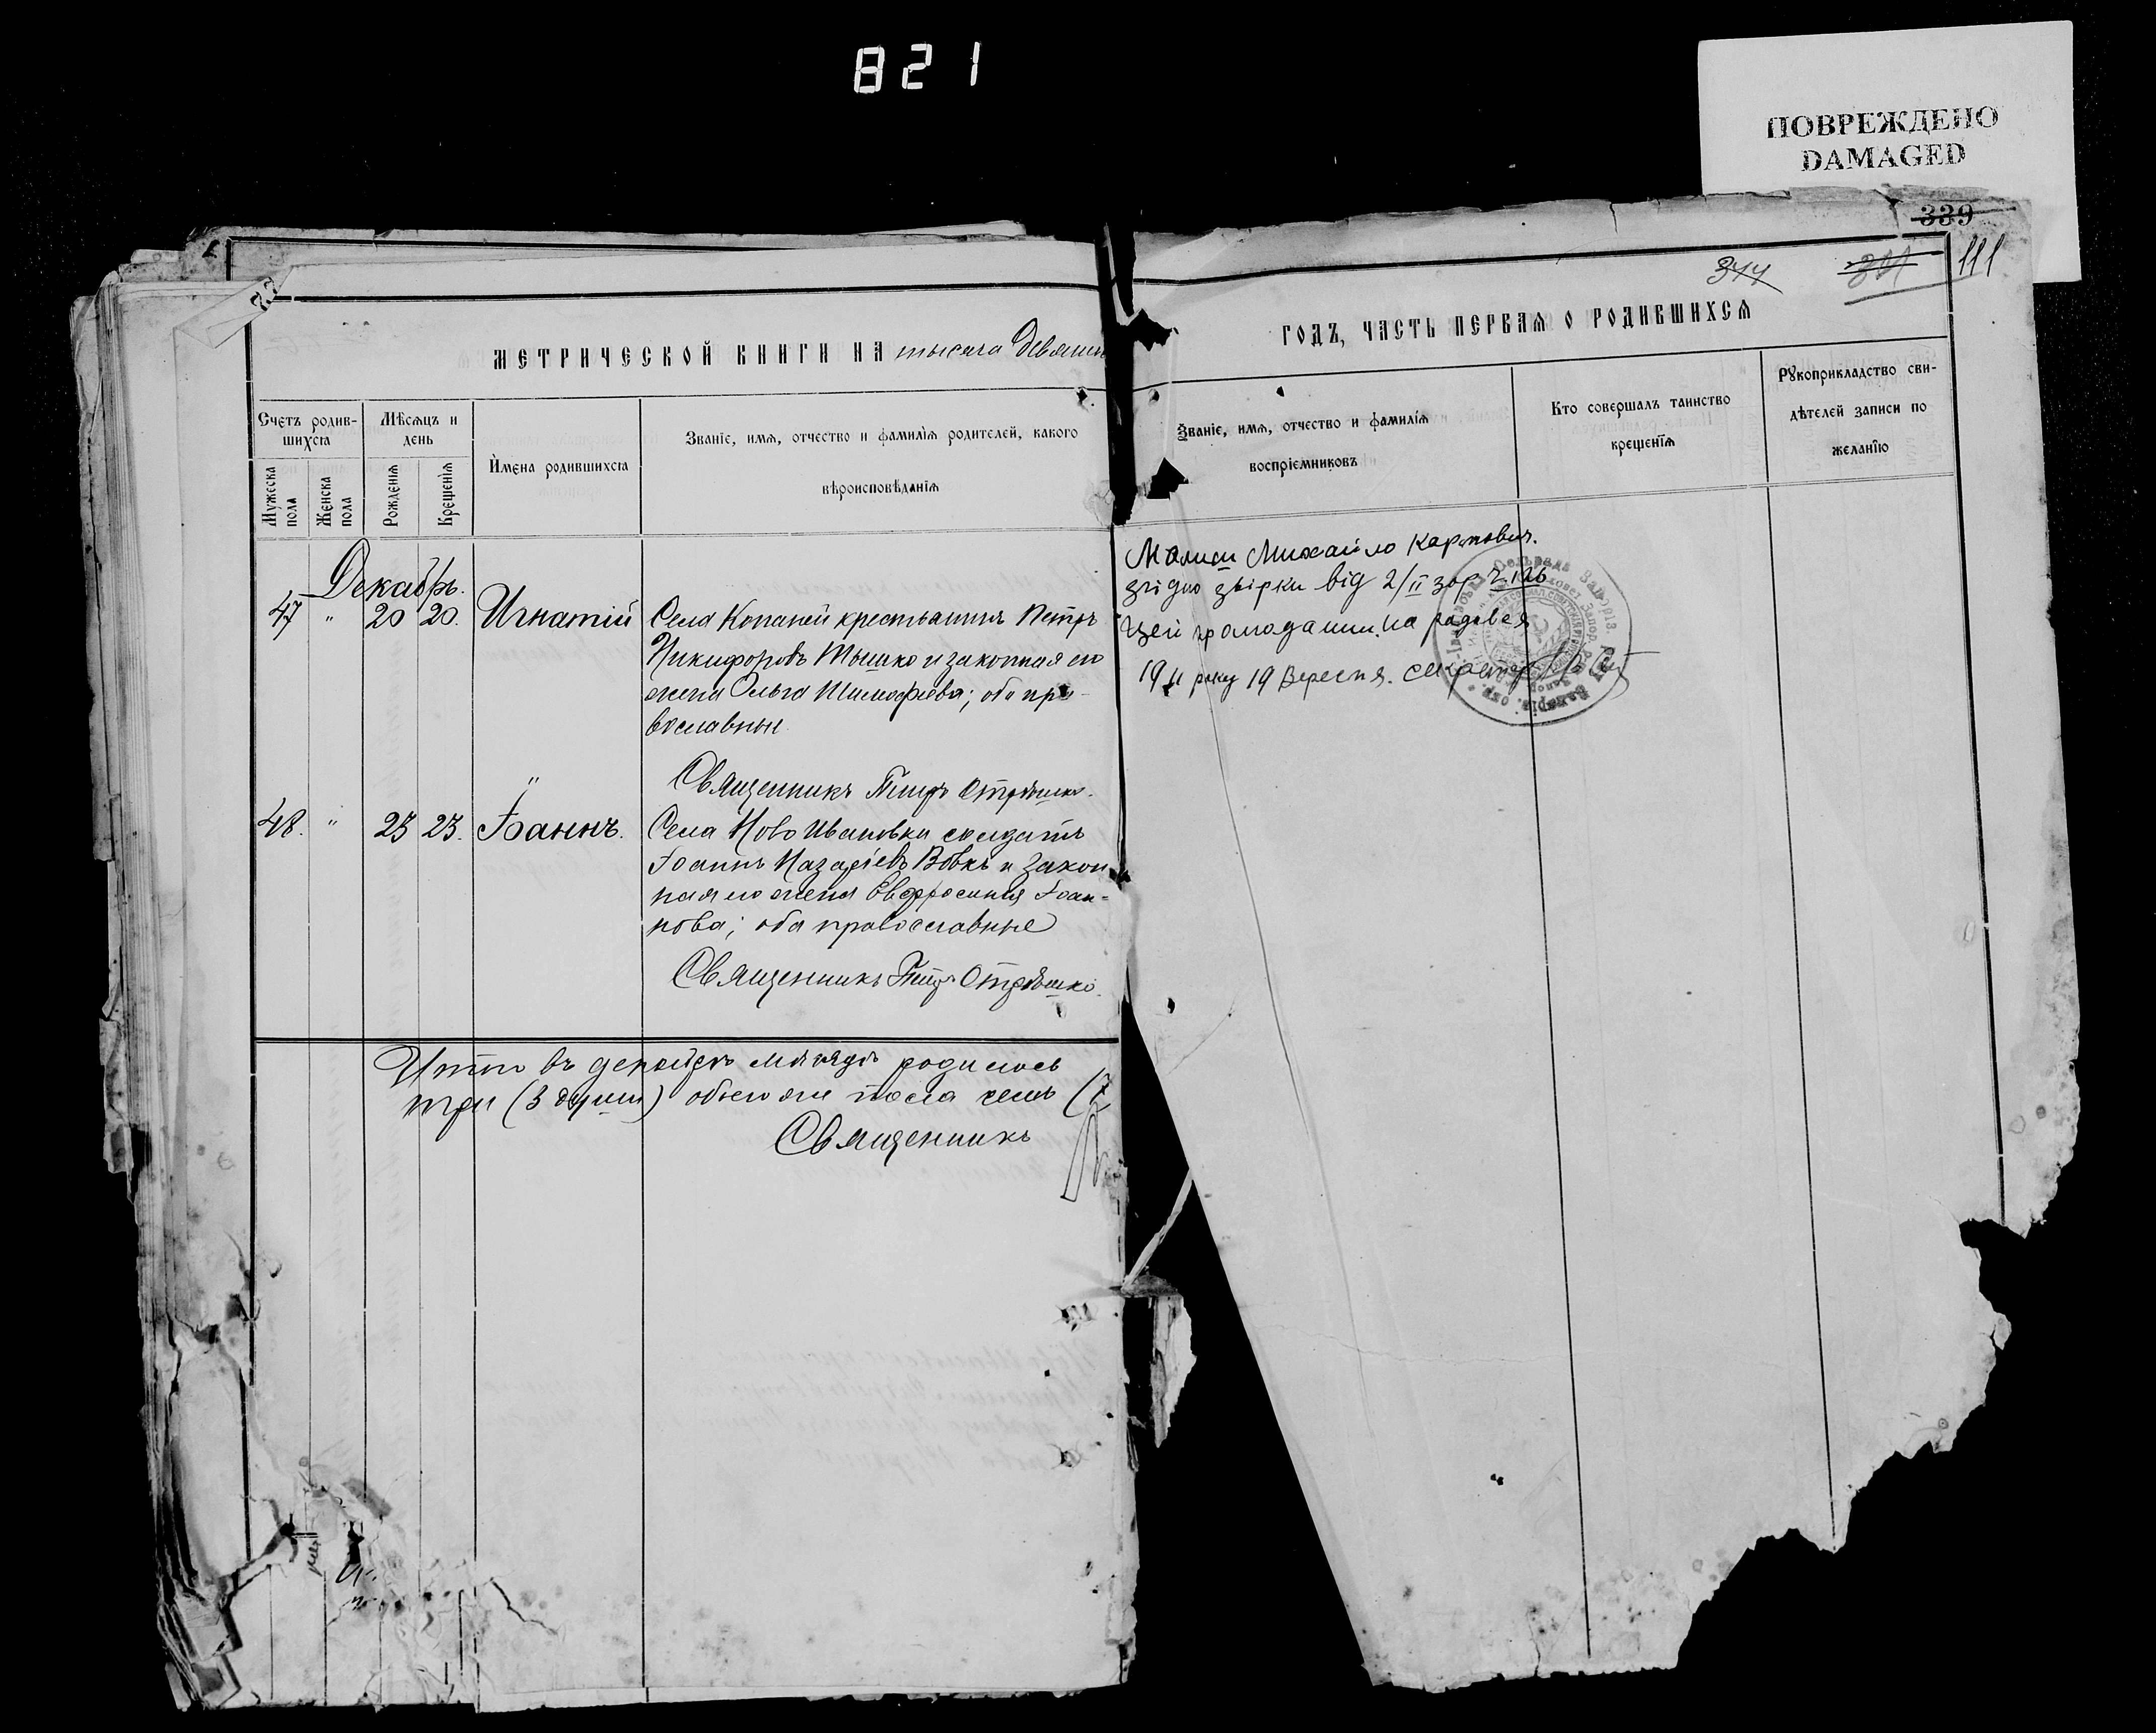 821
ПОВРЕЖДЕНО
DAMAGED
339
344
111
МЕТРИЧЕСКОЙ КНИГИ НА тысяча девятьс
ГОДЪ, ЧАСТЬ ПЕРВАЯ О РОДИВШИХСЯ
Счетъ родив-
шихся
Мѣсяцъ и
день
Мужеска
пола
Женска
пола
Рожденія
Крещенія
Имена родившихся
Званіе, имя, отчество и фамилія родителей, какого
вѣроисповѣданія
Званіе, имя, отчество и фамилія
воспріемниковъ
Кто совершалъ таинство
крещенія
Рукоприкладство сви-
дѣтелей записи по
желанію
Декабрь.
47 " 20 20. Игнатій Села Копаней крестьянинъ Петръ
Никифоровъ Мышко и законная его
жена Ольга Тимофеева; оба пра-
вославные
Священникъ Петръ
48. " 23 23. Іоаннъ. Села Ново Ивановки солдатъ
Іоаннъ Назаріевъ Вовкъ и закон
ная его жена Евфросинія Іоан-
нова; оба православные
Священникъ Петръ
Итого въ декабрѣ мѣсяцѣ родилось
три (3 души) обоего же пола семь (7
Священникъ
Михайло Карпович.
згідно звірки від 2/II
цей громадянин на родився
1911 року 19 Вересня. секретар